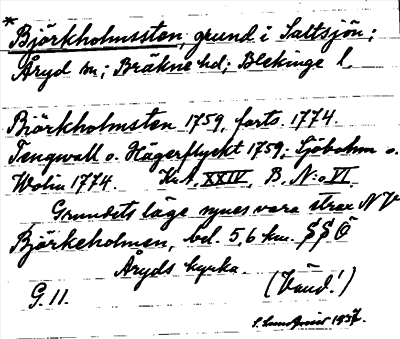 * Björkholmssten, grund i Saltsjön;
Åryd sn; Bräkne hd; Blekinge l.
Björkholmsten 1759, forts. 1774.
Tengwall o. Hägerflyckt 1759; Sjöbohm o.
Wolin 1774. Kr.A. XXIV, B. N:o VI.
Grundets läge synes vara strax NV
Björkeholmen, bel. 5,6 km. SSÖ
Åryds kyrka.
G. 11. (Vänd!)
1937.